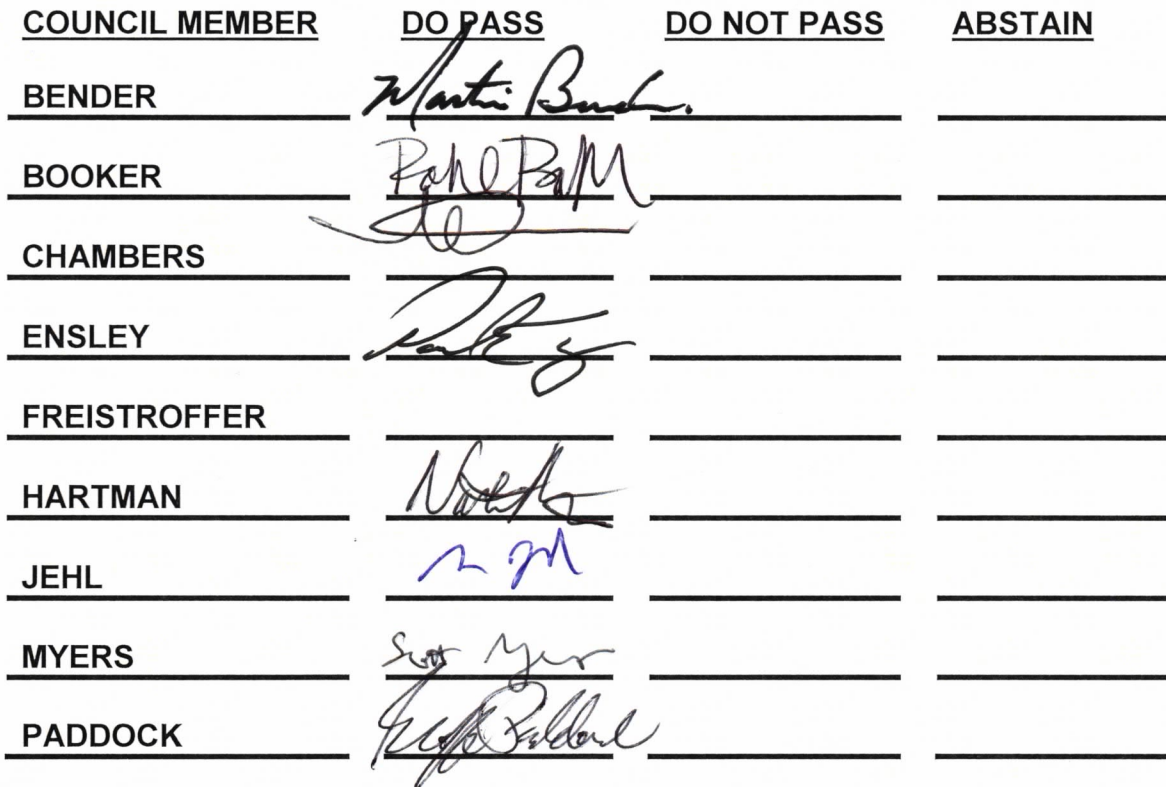 COUNCIL MEMBER DO PASS DO NOT PASS ABSTAIN
BENDER Martin Bender
BOOKER
CHAMBERS
ENSLEY
FREISTROFFER
HARTMAN
JEHL
MYERS Scott Myers
PADDOCK Geoff Paddock